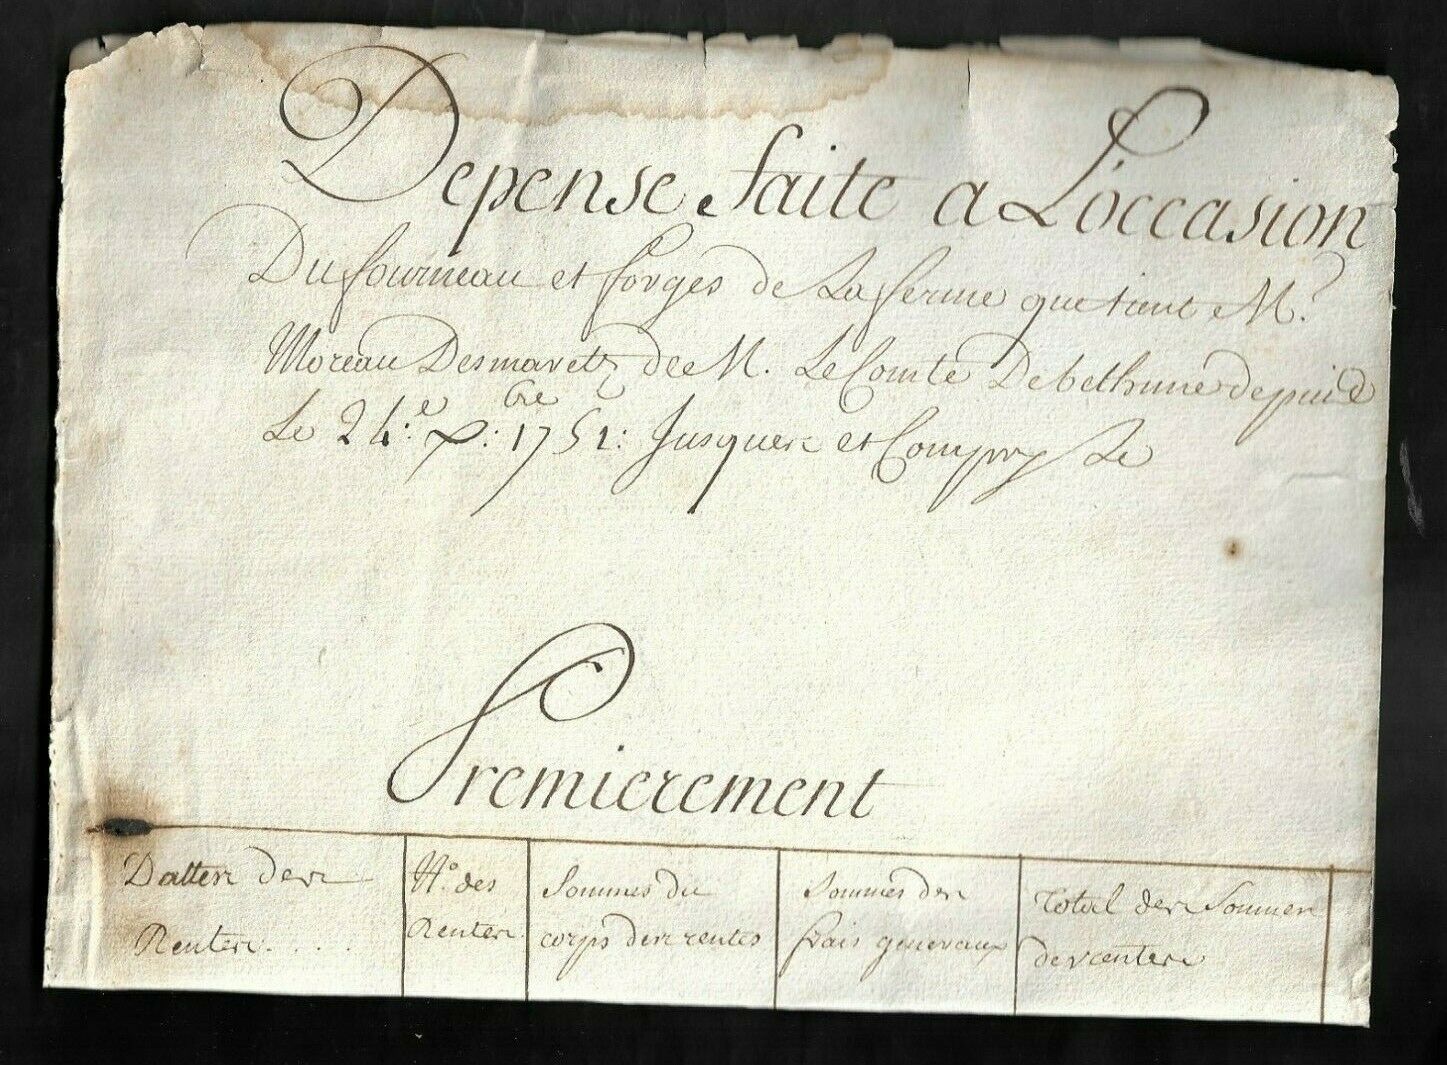 Depense faite a L'occasion
Du fourneau et forges de La ferme que tient M.r
Moreau Desmaretz de M. Le Comte De bethune depuis
Le 24.e : 1751: Jusques et Compry Le
Premierement
Dattes des
Rentes . . . .
N.o des
Rentes
Sommes du
corps des rentes
Sommes des
frais generaux
Total des Sommes
des rentes